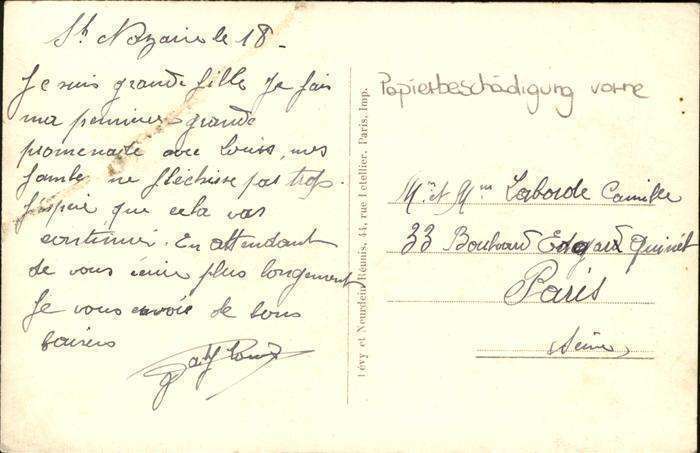 St Nazaire le 18 -
Je suis grande fille Je fais
ma premiere grande
promenade avec Louise, mes
jambes ne fléchisse pas trop.
J'espère que cela vas
continuer. En attendant
de vous écrire plus longement
Je vous envoie de bons
baisers
Lévy et Neurdein Réunis, 44, rue Letellier, Paris, Imp.
Papierbeschädigung vorne
Mr et Mme Laborde Camille
33 Boulvard Edgard Quinet
Paris
(Seine)